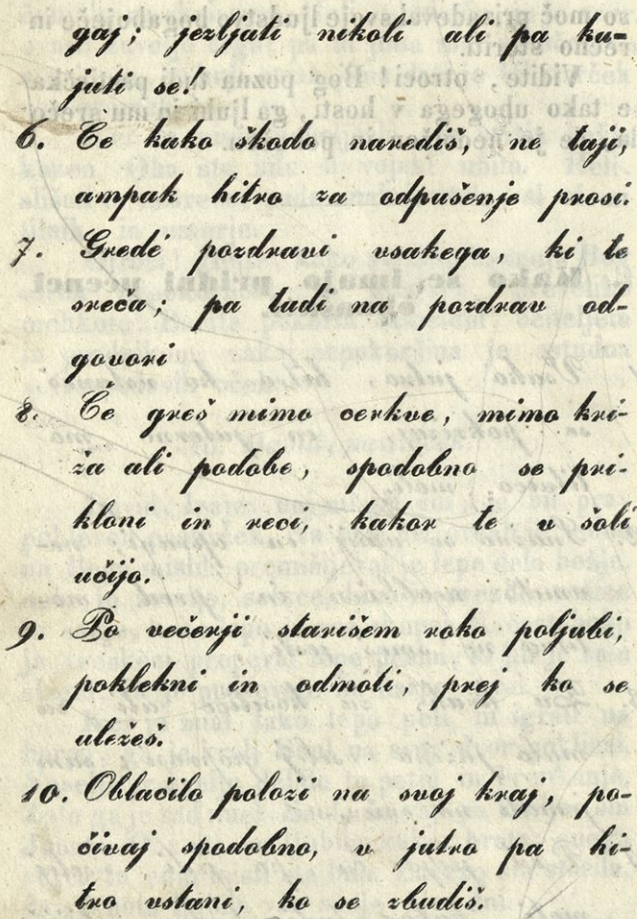 gaj; jezljati nikoli ali pa ku-
jati se!
6. Če kako škodo narediš, ne taji,
ampak hitro za odpušenje prosi.
7. Gredé pozdravi vsakega, ki te
sreča; pa tudi na pozdrav od-
govori
8. Če greš mimo cerkve, mimo kri-
ža ali podobe, spodobno se pri-
kloni in reci, kakor te v šoli
učijo.
9. Po večerji starišem roko poljubi,
poklekni in odmoli, prej ko se
uležeš.
10. Oblačilo položi na svoj kraj, po-
čivaj spodobno, v jutro pa hi-
tro vstani, ko se zbudiš.